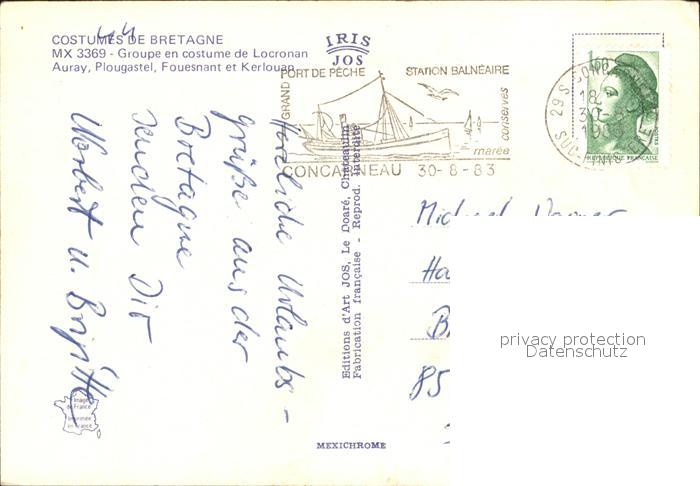 44
COSTUMES DE BRETAGNE
MX 3369 - Groupe en costume de Locronan
Auray, Plougastel, Fouesnant et Kerlouan
IRIS
JOS
GRAND
PORT DE PÊCHE
STATION BALNÉAIRE
conserves
marée
CONCARNEAU 30-8-83
1,60
REPUBLIQUE FRANÇAISE
29 S
18
30-8
Herzliche Urlaubs-
grüße aus der
Bretagne
senden Dir
Norbert u. Brigitte
Editions d'Art JOS, Le Doaré, Châteaulin
Fabrication française - Reprod. interdite
Michael
Ha
B
85
privacy protection
Datenschutz
image
de France
imprimée
en France
MEXICHROME